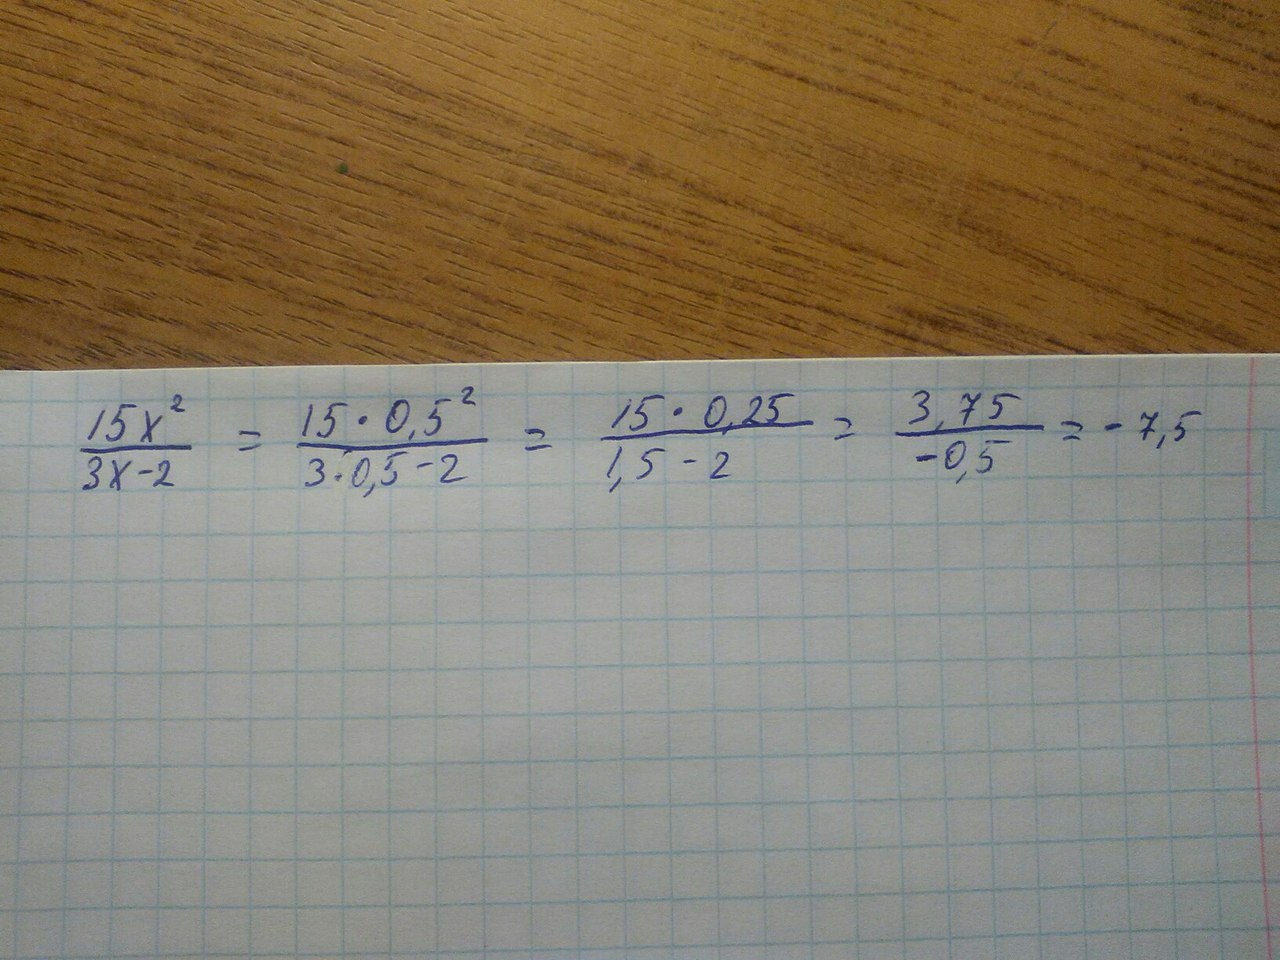 15x²/3x-2 = 15·0,5²/3·0,5-2 = 15·0,25/1,5-2 = 3,75/-0,5 = -7,5